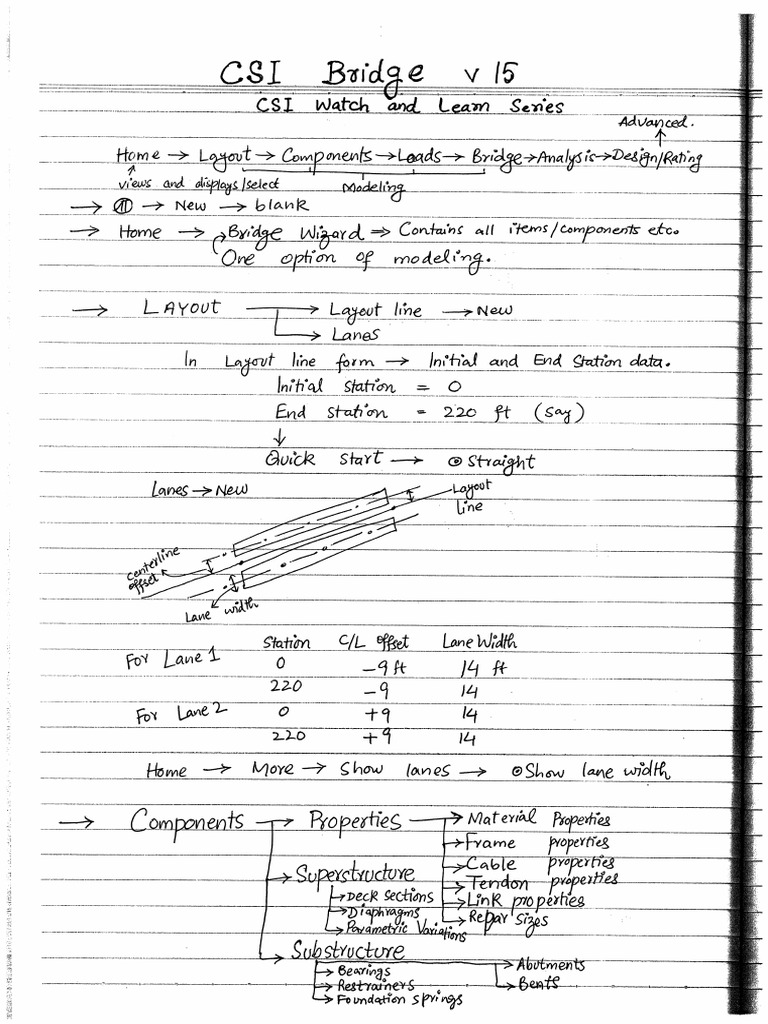 CSI Bridge v 15
CSI Watch and Learn Series
Advanced.
Home → Layout → Components → Loads → Bridge → Analysis → Design/Rating
views and displays/select
Modeling
→ → New → blank
→ Home → Bridge Wizard ⇒ Contains all items/components etc.
One option of modeling.
→ LAYOUT → Layout line → New
→ Lanes
In Layout line form → Initial and End Station data.
Initial station = 0
End station = 220 ft (say)
↓
Quick start → ⊙ Straight
Lanes → New
Layout
line
centerline
offset
Lane width
Station C/L offset Lane Width
For Lane 1 0 -9 ft 14 ft
220 -9 14
For Lane 2 0 +9 14
220 +9 14
Home → More → Show lanes → ⊙ Show lane width
→ Components → Properties → Material Properties
→ Frame properties
→ Cable properties
→ Superstructure
→ Tendon properties
→ Deck sections
→ Link properties
→ Diaphragms
→ Rebar sizes
→ Parametric Variations
→ Substructure
→ Abutments
→ Bearings
→ Bents
→ Restrainers
→ Foundation springs